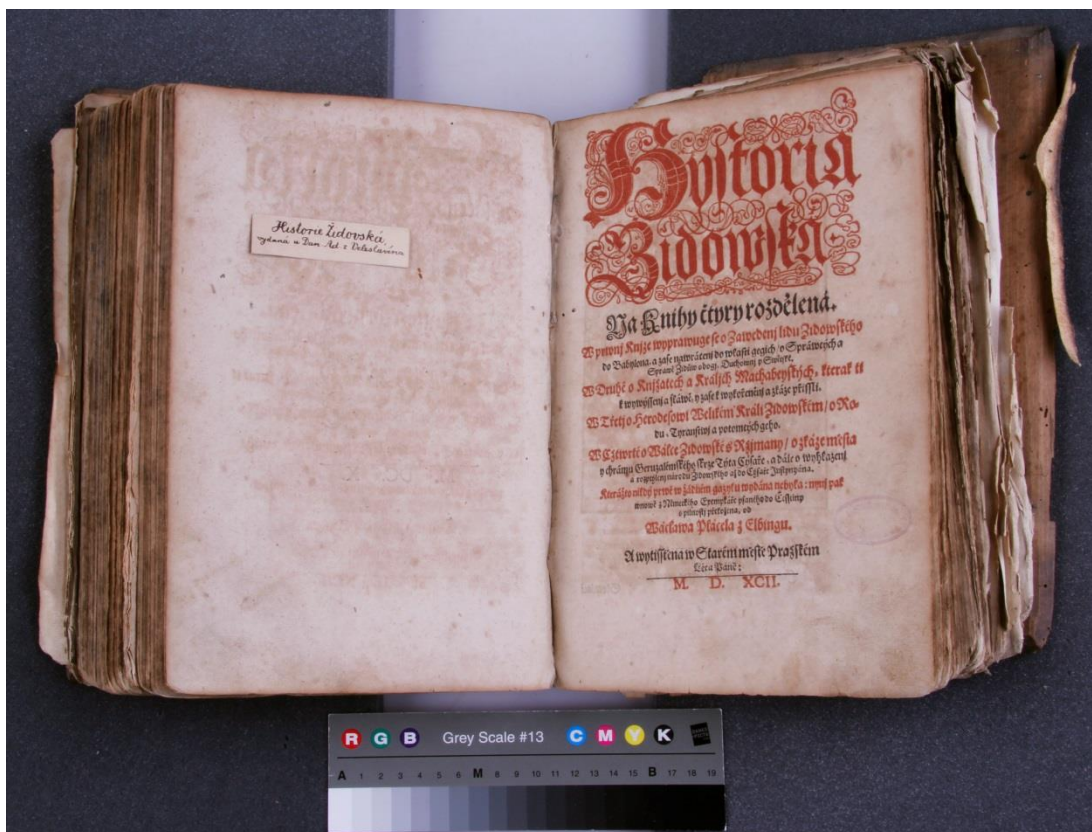 Historie Židovská,
vydaná u Dan. Ad. z Veleslavína
Hystoria
Židowská
Na Knihy čtyry rozdělená.
W prwnij Knjze wyprawuge se o Zawedenj lidu Židowského
do Babylona, a zase nawrácenj do wlasti gegich / o Spráwcých a
Spráwě Židůw obogj, Duchownj y Swětské.
W Druhé o Knjžatech a Králjch Machabeyských, kterak ti
k wywýssenj a sláwě, y zase k wykořeněnj a zkáze přissli.
W Třetj o Herodesowi Welikém Králi Židowském / o Ro-
du, Tyranstwj a potomcých geho.
W Cžtwrté o Wálce Židowské s Ržjmany / o zkáze města
y chrámu Geruzalémského skrze Týta Cýsaře, a dále o wyhlazenj
a rozptýlenj národu Židowského až do Cýsaře Justynyána.
Kterážto nikdý prwé w žádném gazyku wydána nebyla: nynj pak
wnowě z Německého Exempláře psaného do Cžesstiny
s pilnostj přeložena, od
Wácslawa Plácela z Elbingu.
A wytisstěna w Starém městě Pražském
Léta Páně:
M. D. XCII.
R G B Grey Scale #13 C M Y K
A 1 2 3 4 5 6 M 8 9 10 11 12 13 14 15 B 17 18 19